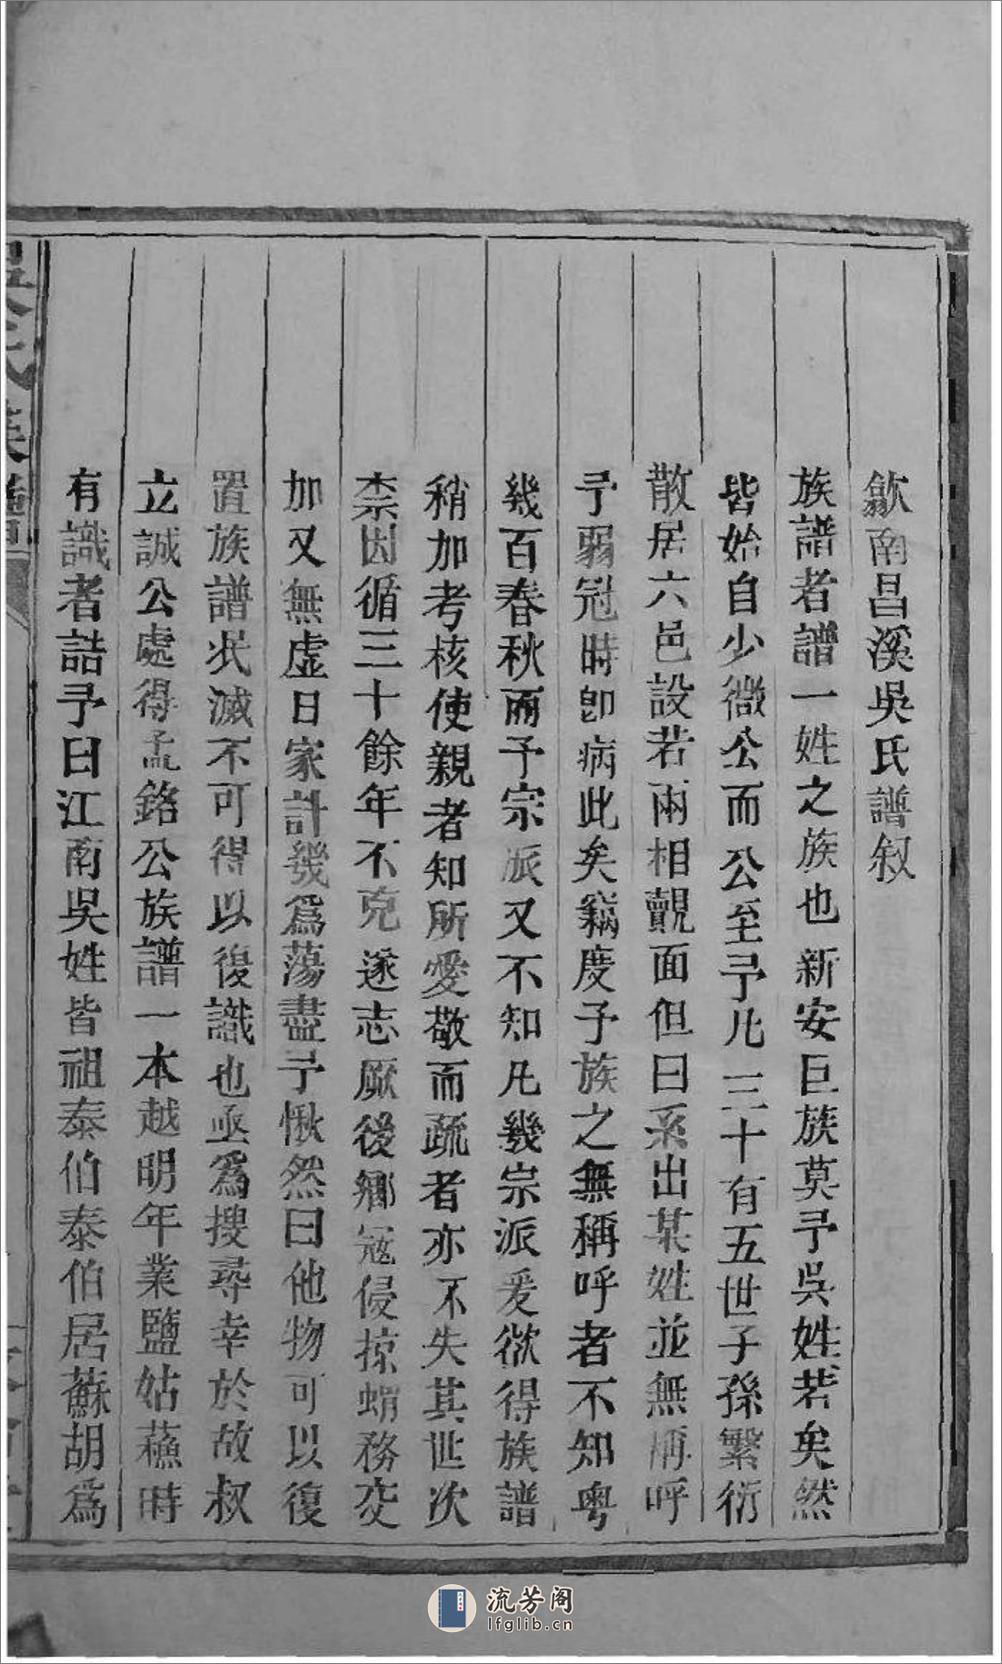 歙南昌溪吳氏譜叙
族譜者譜一姓之族也新安巨族莫予吳姓若矣然
皆始自少微公而公至予凡三十有五世子孫繁衍
散居六邑設若兩相覿面但曰系出某姓並無稱呼
予弱冠時卽病此矣竊度予族之無稱呼者不知粤
幾百春秋兩予宗派又不知凡幾宗派爰欲得族譜
稍加考核使親者知所愛敬而疏者亦不失其世次
柰因循三十餘年不克遂志厥後鄉冦侵掠蝟務交
加又無虚日家計幾爲蕩盡予愀然曰他物可以復
置族譜泯滅不可得以復識也亟爲搜尋幸於故叔
立誠公處得孟銘公族譜一本越明年業鹽姑蘓時
有識者詰予曰江南吳姓皆祖泰伯泰伯居蘇胡爲
吳氏族譜
流芳阁
lfglib.cn